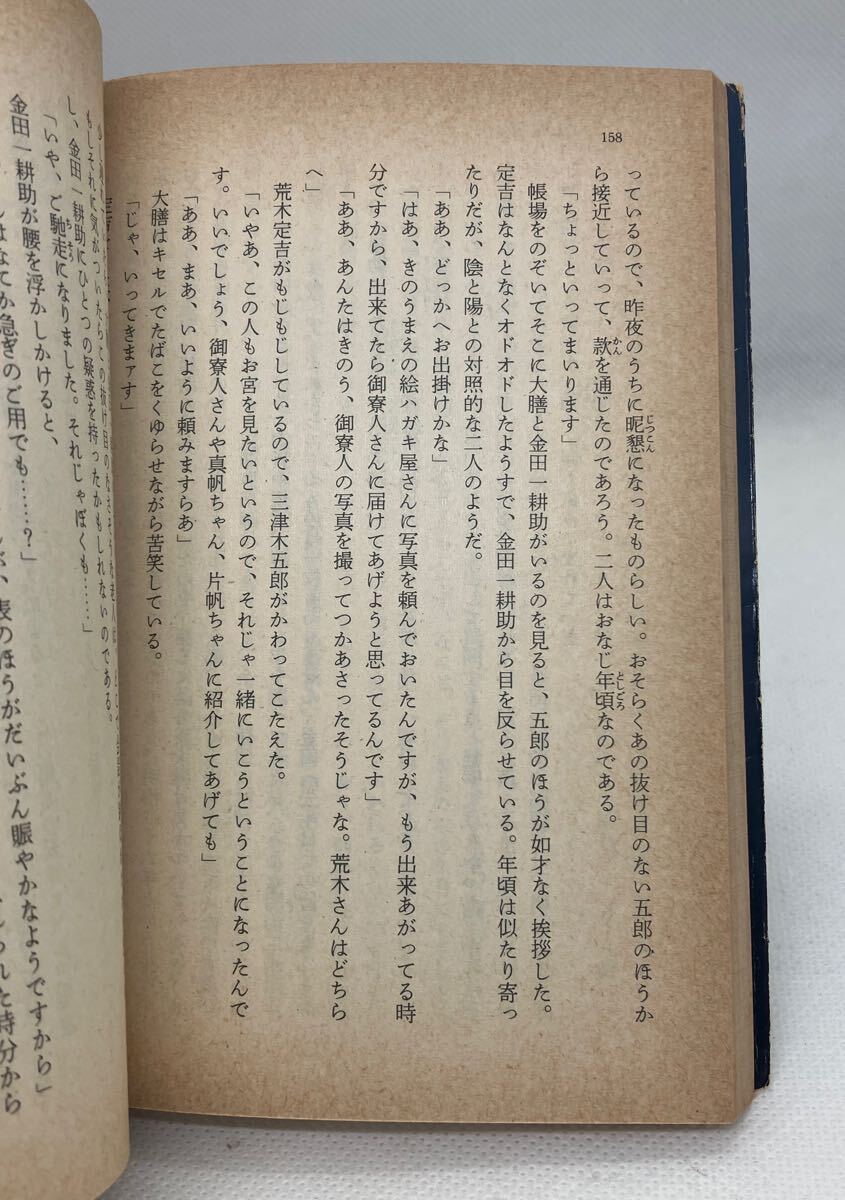 158
っているので、昨夜のうちに昵懇になったものらしい。おそらくあの抜け目のない五郎のほうか
ら接近していって、款を通じたのであろう。二人はおなじ年頃なのである。
「ちょっといってまいります」
帳場をのぞいてそこに大膳と金田一耕助がいるのを見ると、五郎のほうが如才なく挨拶した。
定吉はなんとなくオドオドしたようすで、金田一耕助から目を反らせている。年頃は似たり寄っ
たりだが、陰と陽との対照的な二人のようだ。
「ああ、どっかへお出掛けかな」
「はあ、きのうまえの絵ハガキ屋さんに写真を頼んでおいたんですが、もう出来あがってる時
分ですから、出来てたら御寮人さんに届けてあげようと思ってるんです」
「ああ、あんたはきのう、御寮人の写真を撮ってつかあさったそうじゃな。荒木さんはどちら
へ」
荒木定吉がもじもじしているので、三津木五郎がかわってこたえた。
「いやあ、この人もお宮を見たいというので、それじゃ一緒にいこうということになったんで
す。いいでしょう、御寮人さんや真帆ちゃん、片帆ちゃんに紹介してあげても」
「ああ、まあ、いいように頼みますらあ」
大膳はキセルでたばこをくゆらせながら苦笑している。
「じゃ、いってきまァす」
もしそれに気がついたらこの抜け目のなさそうな老人は
し、金田一耕助にひとつの疑惑を持ったかもしれないのである。
「いや、ご馳走になりました。それじゃぼくも……」
金田一耕助が腰を浮かしかけると、
なてか急ぎのご用でも……？」
表のほうがだいぶん賑やかなようですから」
られた時分から